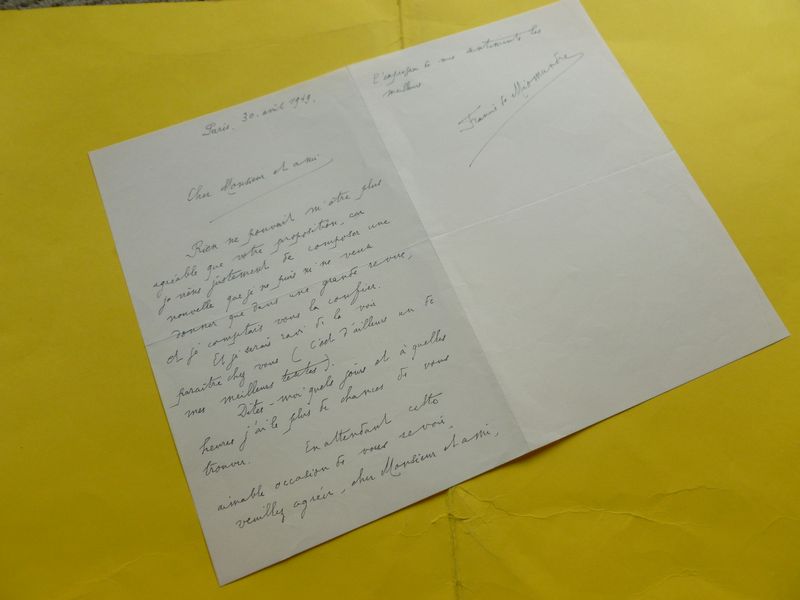 Paris. 30. avril 1949.
Cher Monsieur et ami
Rien ne pouvait m'être plus
agréable que votre proposition, car
je viens justement de composer une
nouvelle que je ne puis ni ne veux
donner que dans une grande revue,
et je comptais vous la confier.
Et je serais ravi de la voir
paraître chez vous (c'est d'ailleurs un de
mes meilleurs textes).
Dites-moi quels jours et à quelles
heures j'ai le plus de chances de vous
trouver. En attendant cette
aimable occasion de vous revoir,
veuillez agréer, cher Monsieur et ami,
l'expression de mes sentiments les
meilleurs
Francis de Miomandre